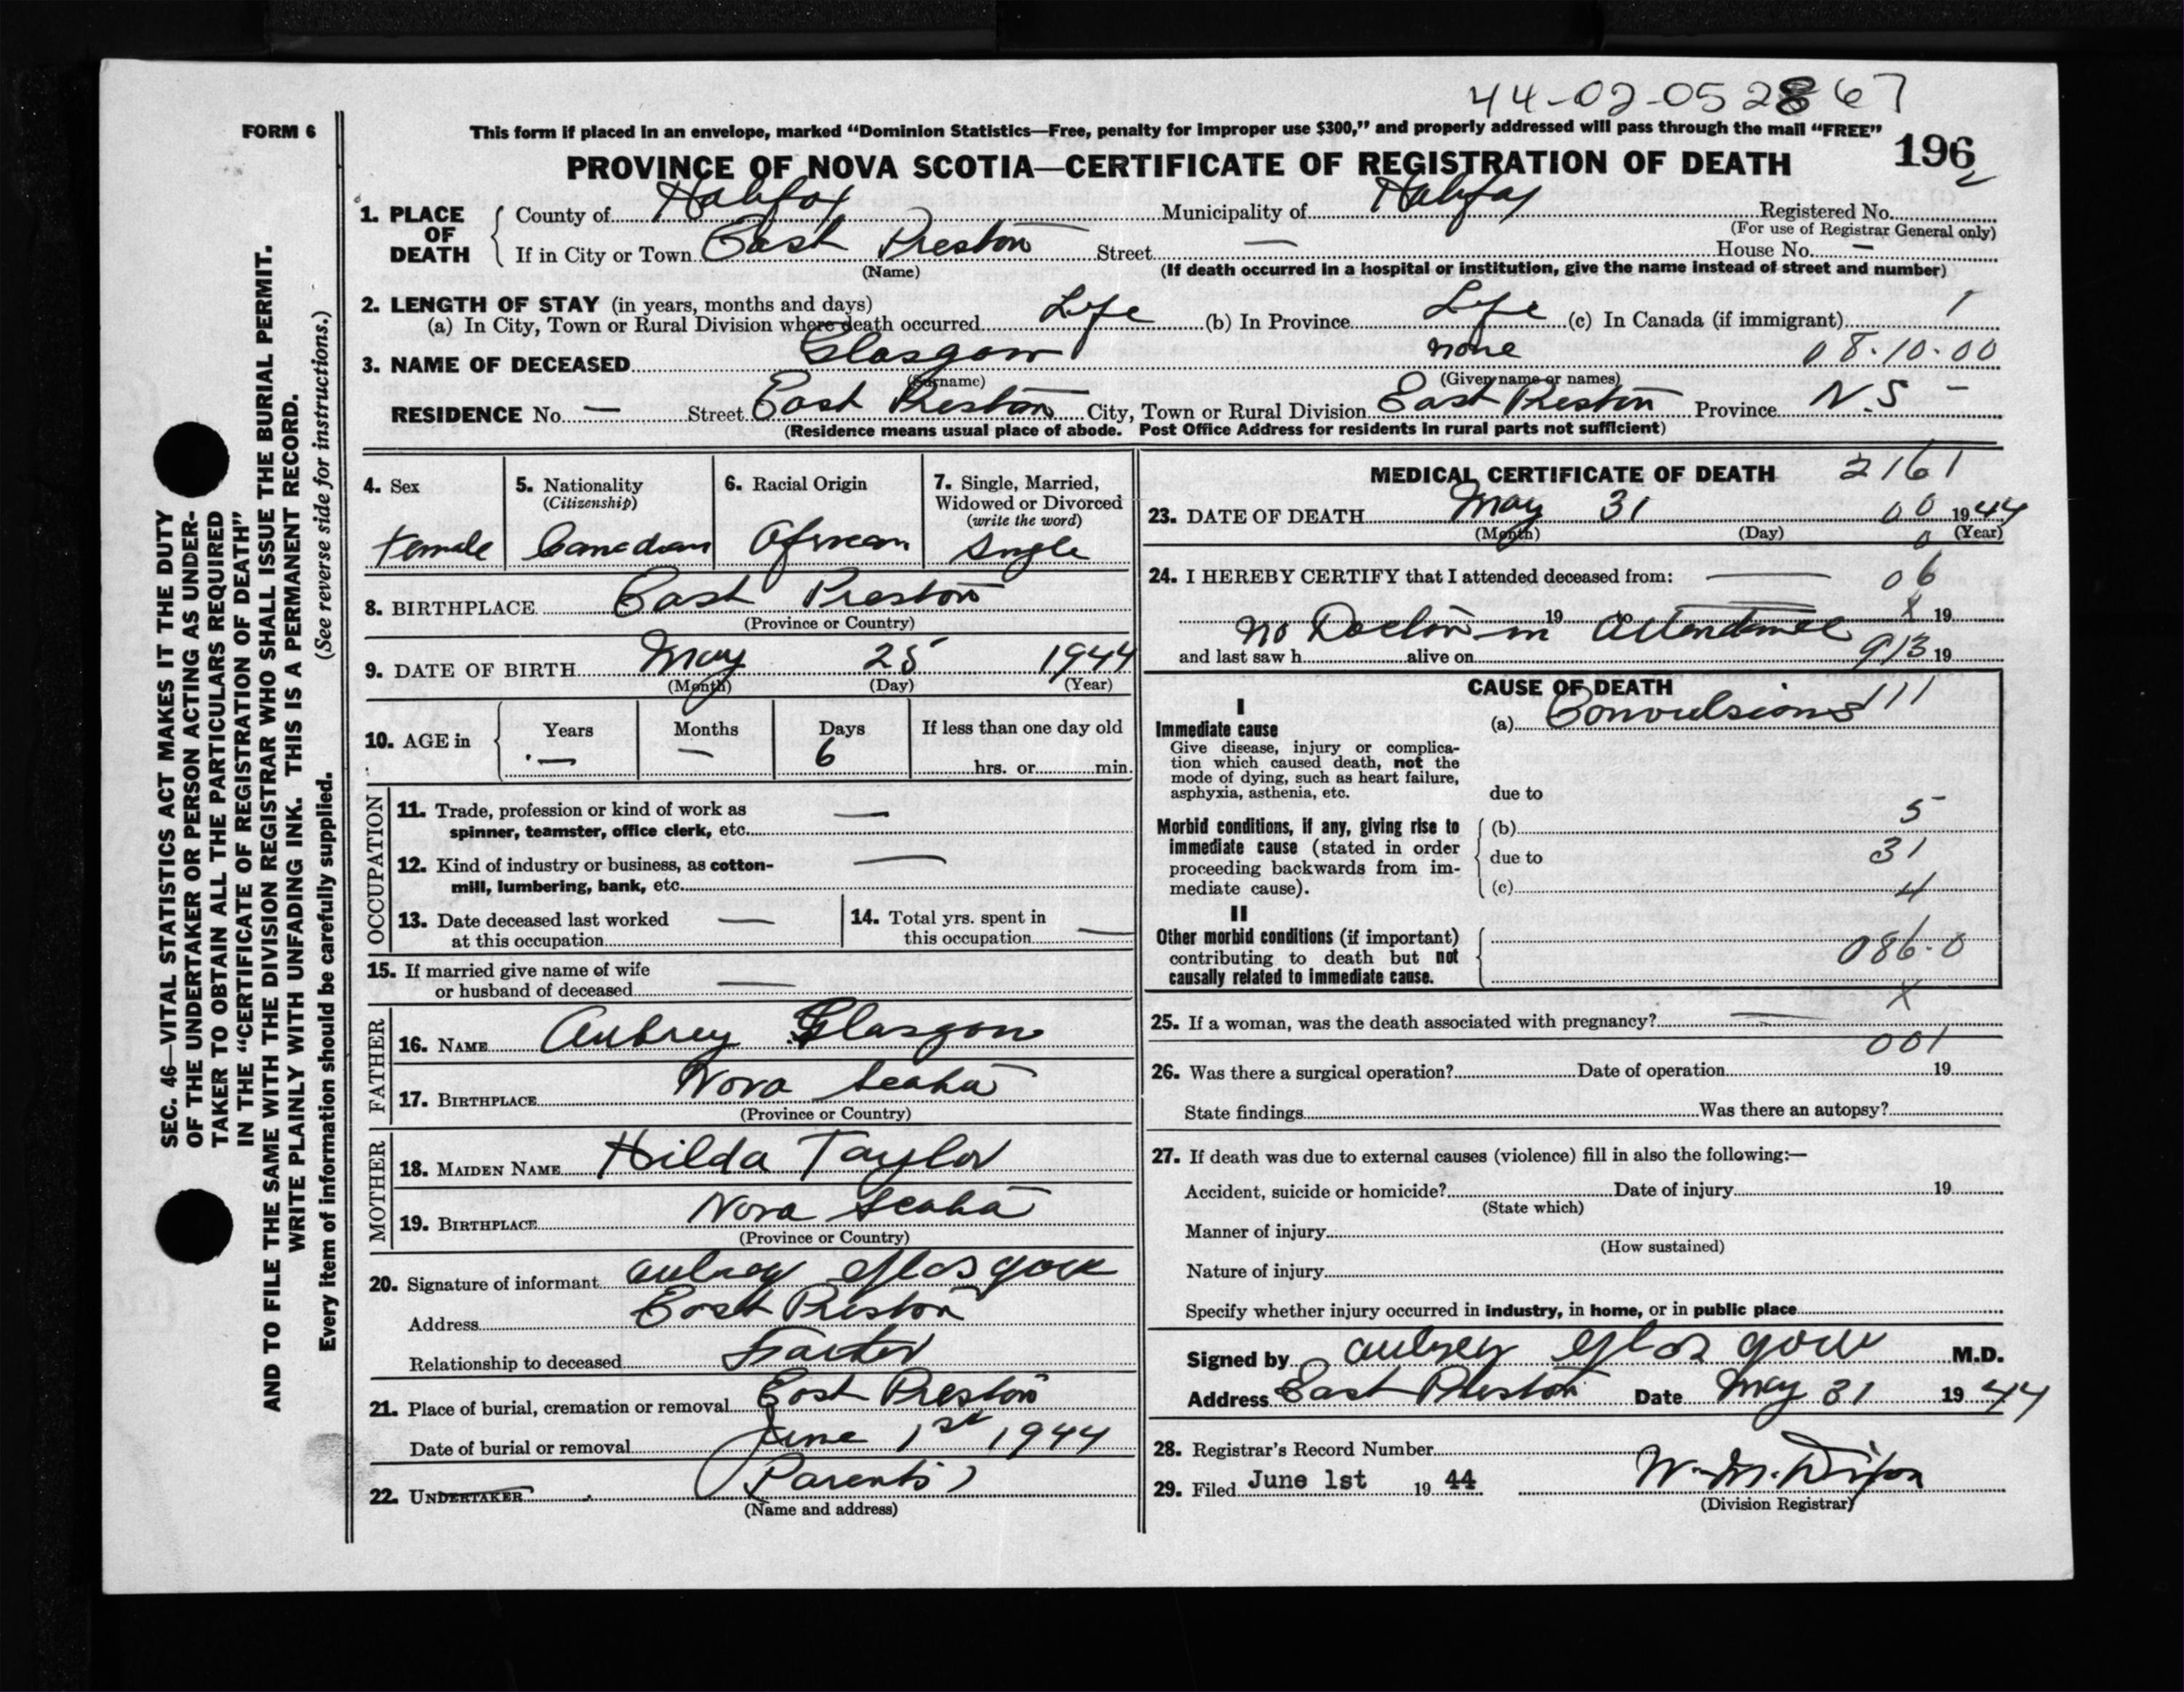 44-02-052867
FORM 6
This form if placed in an envelope, marked "Dominion Statistics—Free, penalty for improper use $300," and properly addressed will pass through the mail "FREE"
PROVINCE OF NOVA SCOTIA—CERTIFICATE OF REGISTRATION OF DEATH 196
1. PLACE OF DEATH County of Halifax Municipality of Halifax Registered No.
(For use of Registrar General only)
If in City or Town East Preston Street — House No. —
(Name) (If death occurred in a hospital or institution, give the name instead of street and number)
2. LENGTH OF STAY (in years, months and days)
(a) In City, Town or Rural Division where death occurred Life (b) In Province Life (c) In Canada (if immigrant) /
3. NAME OF DECEASED Glasgow none 08.10.00
(Surname) (Given name or names)
RESIDENCE No. — Street East Preston City, Town or Rural Division East Preston Province N.S –
(Residence means usual place of abode. Post Office Address for residents in rural parts not sufficient)
4. Sex 5. Nationality 6. Racial Origin 7. Single, Married,
(Citizenship) Widowed or Divorced
(write the word)
Female Canadian African Single
8. BIRTHPLACE East Preston
(Province or Country)
9. DATE OF BIRTH May 25 1944
(Month) (Day) (Year)
10. AGE in Years Months Days If less than one day old
— — 6 hrs. or min.
OCCUPATION
11. Trade, profession or kind of work as
spinner, teamster, office clerk, etc. —
12. Kind of industry or business, as cotton-
mill, lumbering, bank, etc. —
13. Date deceased last worked —
at this occupation
14. Total yrs. spent in
this occupation —
15. If married give name of wife
or husband of deceased —
FATHER
16. NAME Aubrey Glasgow
17. BIRTHPLACE Nova Scotia
(Province or Country)
MOTHER
18. MAIDEN NAME Hilda Taylor
19. BIRTHPLACE Nova Scotia
(Province or Country)
20. Signature of informant aubrey glasgow
Address East Preston
Relationship to deceased
21. Place of burial, cremation or removal East Preston
Date of burial or removal June 1st 1944
22. UNDERTAKER (Parents)
(Name and address)
MEDICAL CERTIFICATE OF DEATH 2161
23. DATE OF DEATH May 31 00 1944
(Month) (Day) 0 (Year)
24. I HEREBY CERTIFY that I attended deceased from: — 06
19 to X 19
no Doctor in attendance
and last saw h alive on 913 19
CAUSE OF DEATH
I
Immediate cause (a) Convulsions 111
Give disease, injury or complica-
tion which caused death, not the
mode of dying, such as heart failure,
asphyxia, asthenia, etc. due to
Morbid conditions, if any, giving rise to (b) 5
immediate cause (stated in order due to 31
proceeding backwards from im-
mediate cause). (c) 4
II
Other morbid conditions (if important)
contributing to death but not 086.0
causally related to immediate cause.
X
25. If a woman, was the death associated with pregnancy? —
001
26. Was there a surgical operation? Date of operation 19
State findings Was there an autopsy?
27. If death was due to external causes (violence) fill in also the following:—
Accident, suicide or homicide? Date of injury 19
(State which)
Manner of injury
(How sustained)
Nature of injury
Specify whether injury occurred in industry, in home, or in public place
Signed by aubrey glasgow M.D.
Address East Preston Date May 31 1944
28. Registrar's Record Number
29. Filed June 1st 19 44 W. M. Dixon
(Division Registrar)
SEC. 46—VITAL STATISTICS ACT MAKES IT THE DUTY
OF THE UNDERTAKER OR PERSON ACTING AS UNDER-
TAKER TO OBTAIN ALL THE PARTICULARS REQUIRED
IN THE "CERTIFICATE OF REGISTRATION OF DEATH"
AND TO FILE THE SAME WITH THE DIVISION REGISTRAR WHO SHALL ISSUE THE BURIAL PERMIT.
WRITE PLAINLY WITH UNFADING INK. THIS IS A PERMANENT RECORD.
Every item of information should be carefully supplied. (See reverse side for instructions.)